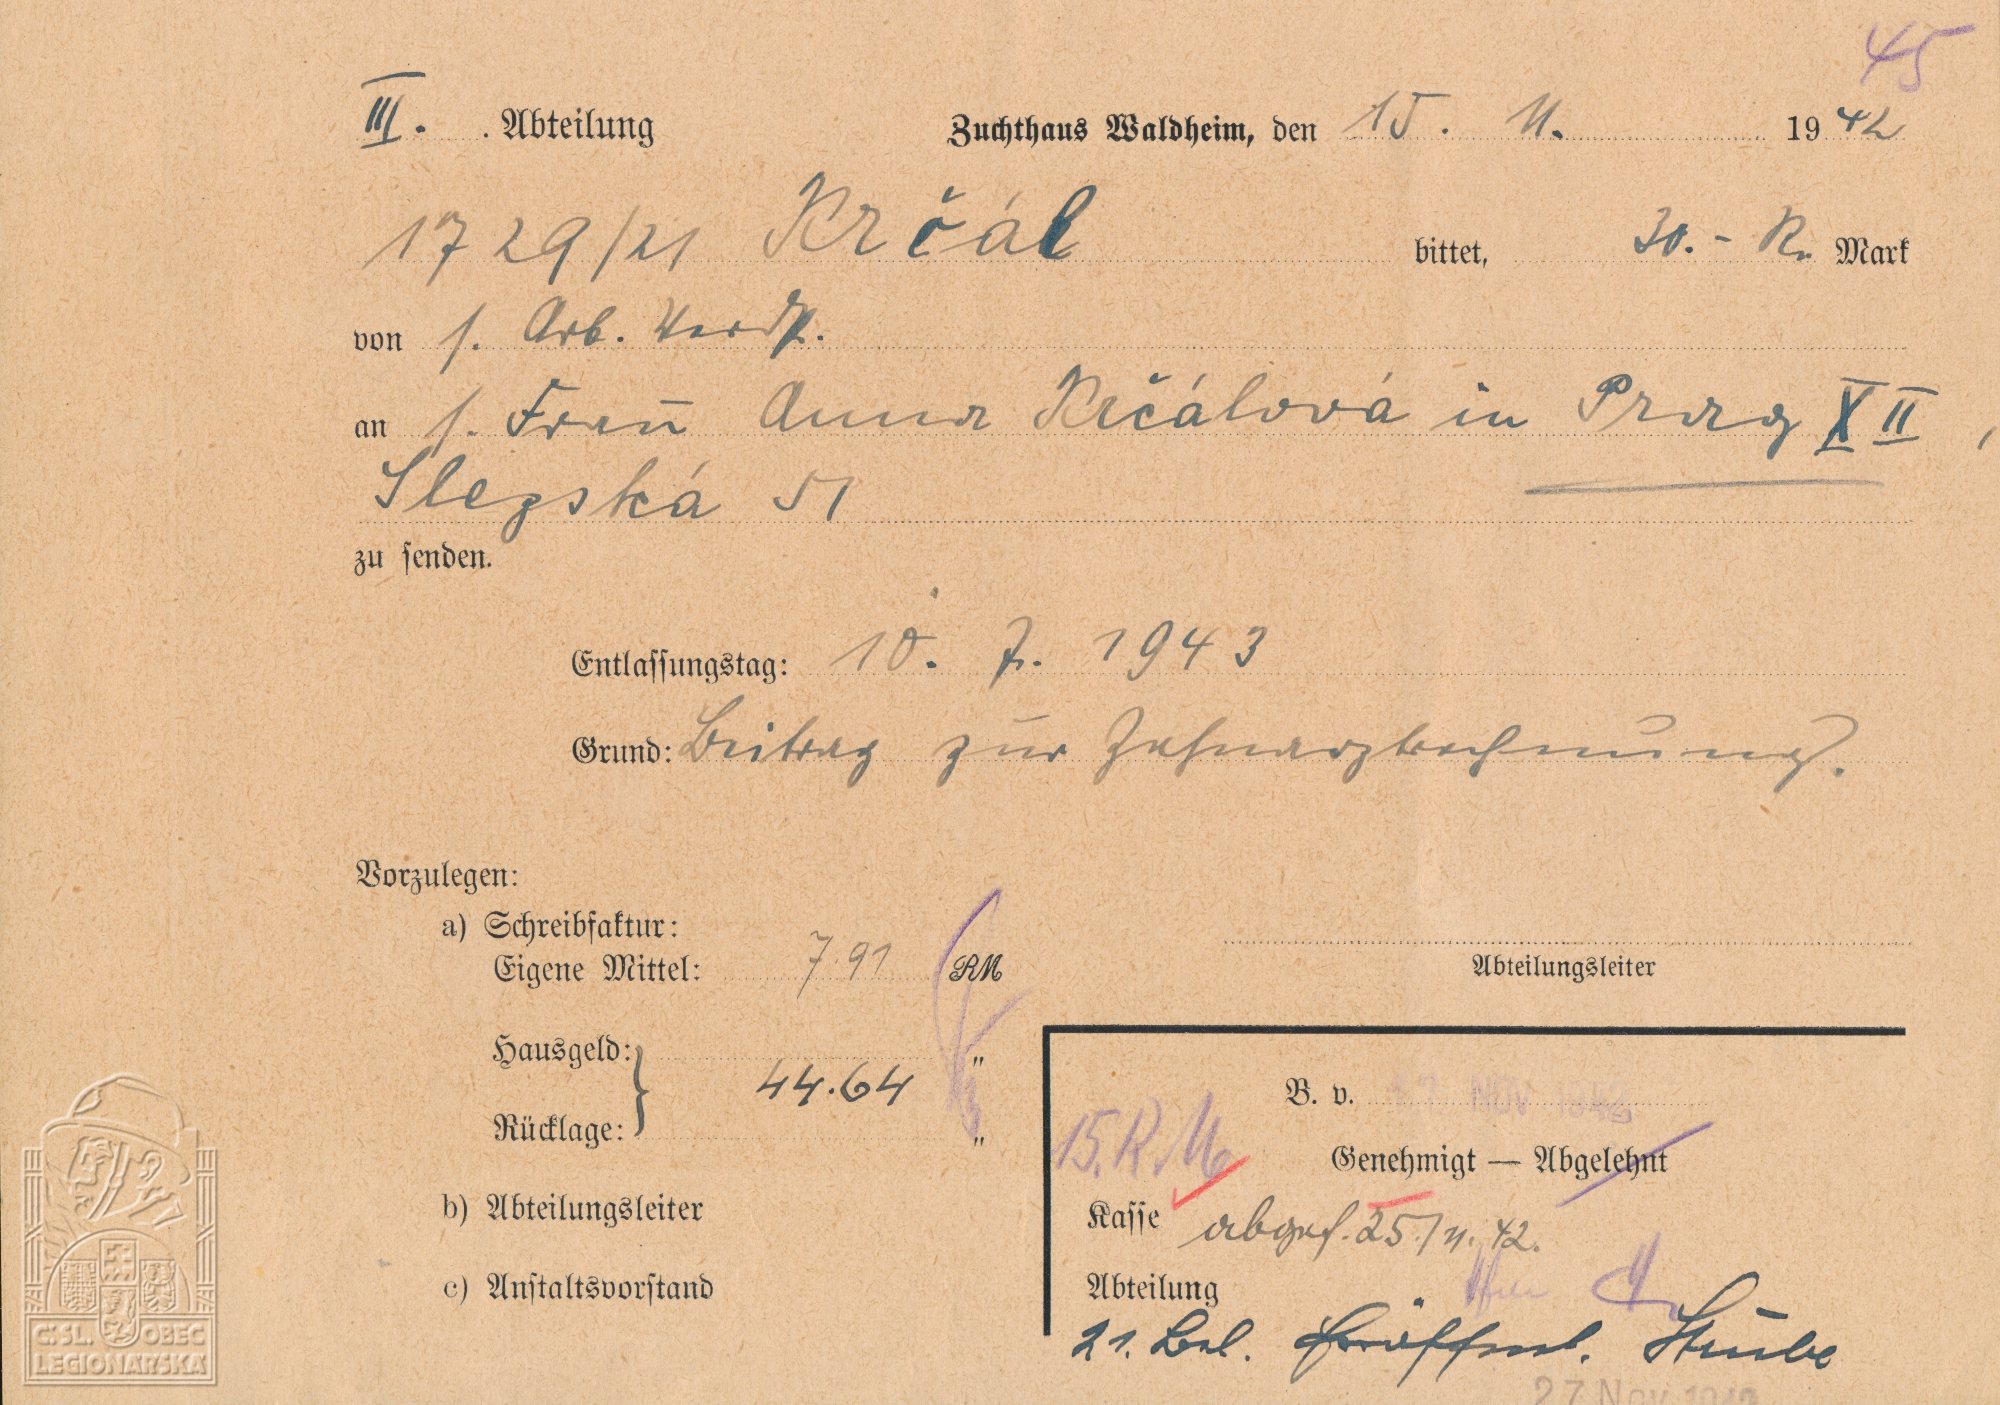 45
III. Abteilung Zuchthaus Waldheim, den 15. 11. 1942
1729/21 Krčál bittet, 30.- R. Mark
von s. Arb. Verd.
an s. Frau Anna Krčálová in Prag XII,
Slezská 51
zu senden.
Entlassungstag: 10. 7. 1943
Grund: Beitrag zur Zahnarztrechnung.
Vorzulegen:
a) Schreibfaktur:
Eigene Mittel: 7.91 RM
Abteilungsleiter
Hausgeld: "
44.64
Rücklage: "
B. v. 17 NOV 1942
15. R.M.
Genehmigt — Abgelehnt
b) Abteilungsleiter
Kasse abges. 25./11. 42.
c) Anstaltsvorstand
Abteilung
21. Bel. eröffnet. Strube
27 Nov 1942
ČSL. OBEC
LEGIONÁŘSKÁ